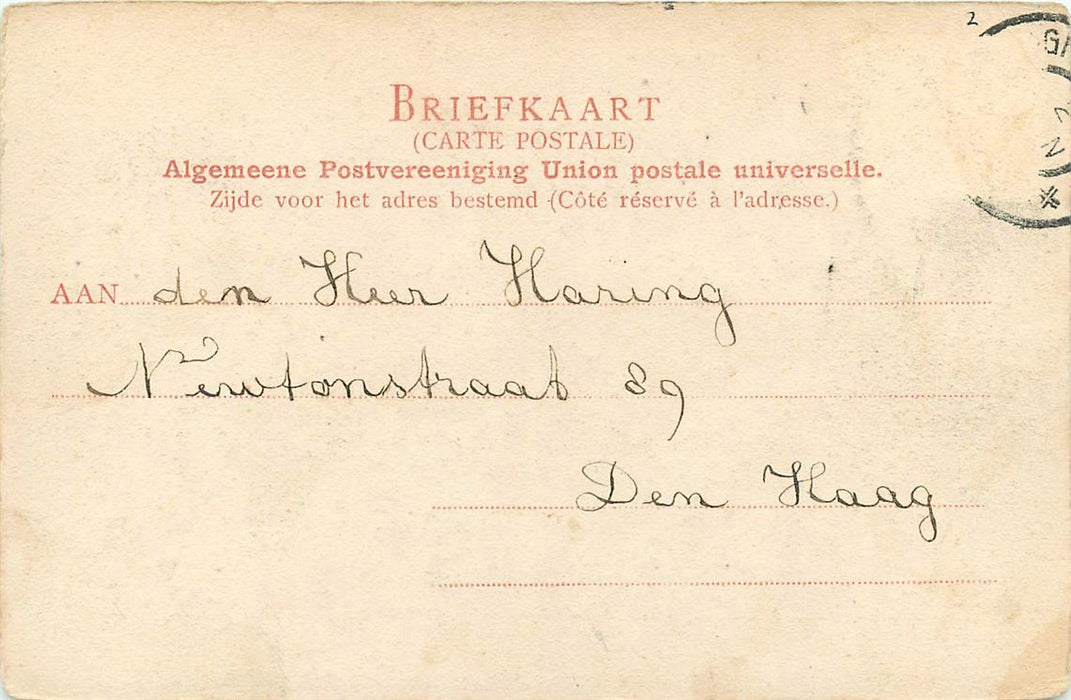 2
BRIEFKAART
(CARTE POSTALE)
Algemeene Postvereeniging Union postale universelle.
Zijde voor het adres bestemd (Côté réservé à l'adresse.)
AAN den Heer Haring
Newtonstraat 89
Den Haag